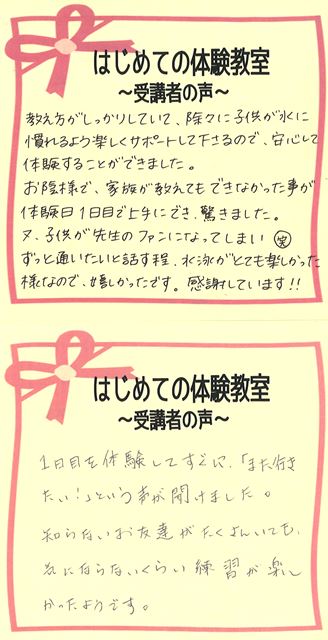 はじめての体験教室
～受講者の声～
教え方がしっかりしていて、除々に子供が水に
慣れるよう楽しくサポートして下さるので、安心して
体験することができました。
お陰様で、家族が教えてもできなかった事が
体験日1日目で上手にでき、驚きました。
又、子供が先生のファンになってしまい㊫
ずっと通いたいと話す程、水泳がとても楽しかった
様なので、嬉しかったです。感謝しています!!
はじめての体験教室
～受講者の声～
1日目を体験してすぐに、「また行き
たい!」という声が聞けました。
知らないお友達がたくさんいても、
気にならないくらい練習が楽し
かったようです。